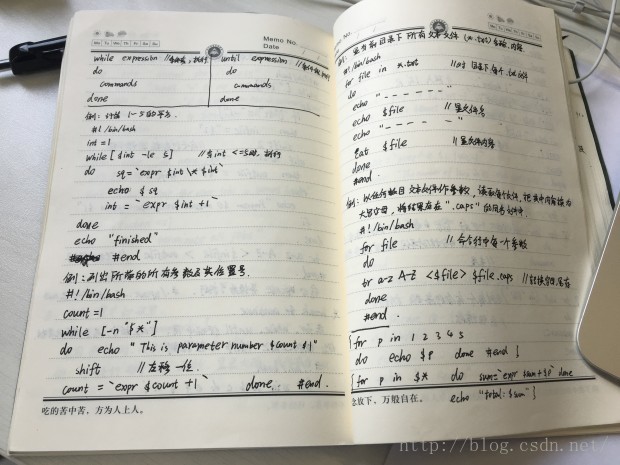 Memo No.
Date
Mo Tu We Th Fr Sa Su
while expression //条件真,执行
do
commands
done
until expression
do
commands
done
例:计算 1~5的平方.
#!/bin/bash
int=1
while [ $int -le 5] //当int <=5时,执行
do sq=`expr $int \* $int`
echo $sq
int = `expr $int +1`
done
echo "finished"
#end
例:列出所有的所有参数及其位置号.
#!/bin/bash
count=1
while [-n "$*"]
do echo "This is parameter number $count $1"
shift //左移一位.
count = `expr $count +1` done. #end.
吃的苦中苦,方为人上人。
例:显示当前目录下所有文本文件 (*.txt)名称,内容
#!/bin/bash
for file in *.txt //对目录下每个.txt文件
do
echo "- - - - - -"
echo $file //显文件名
echo "- - - - - -"
cat $file //显文件内容
done
#end.
例:以任何数目文本文件作参数,读取每个文件,把其中内容换为
大写字母,将结果存在".caps"的同名文件中.
#!/bin/bash
for file //命令行中每一个参数
do
tr a-z A-Z <$file> $file.caps //转换字母,另存
done
#end.
{for p in 1 2 3 4 5
do echo $p done #end }
{for p in $* do sum=`expr sum+$p` done
echo "total:$sum" }
放下,万般自在。
http://blog.csdn.net/